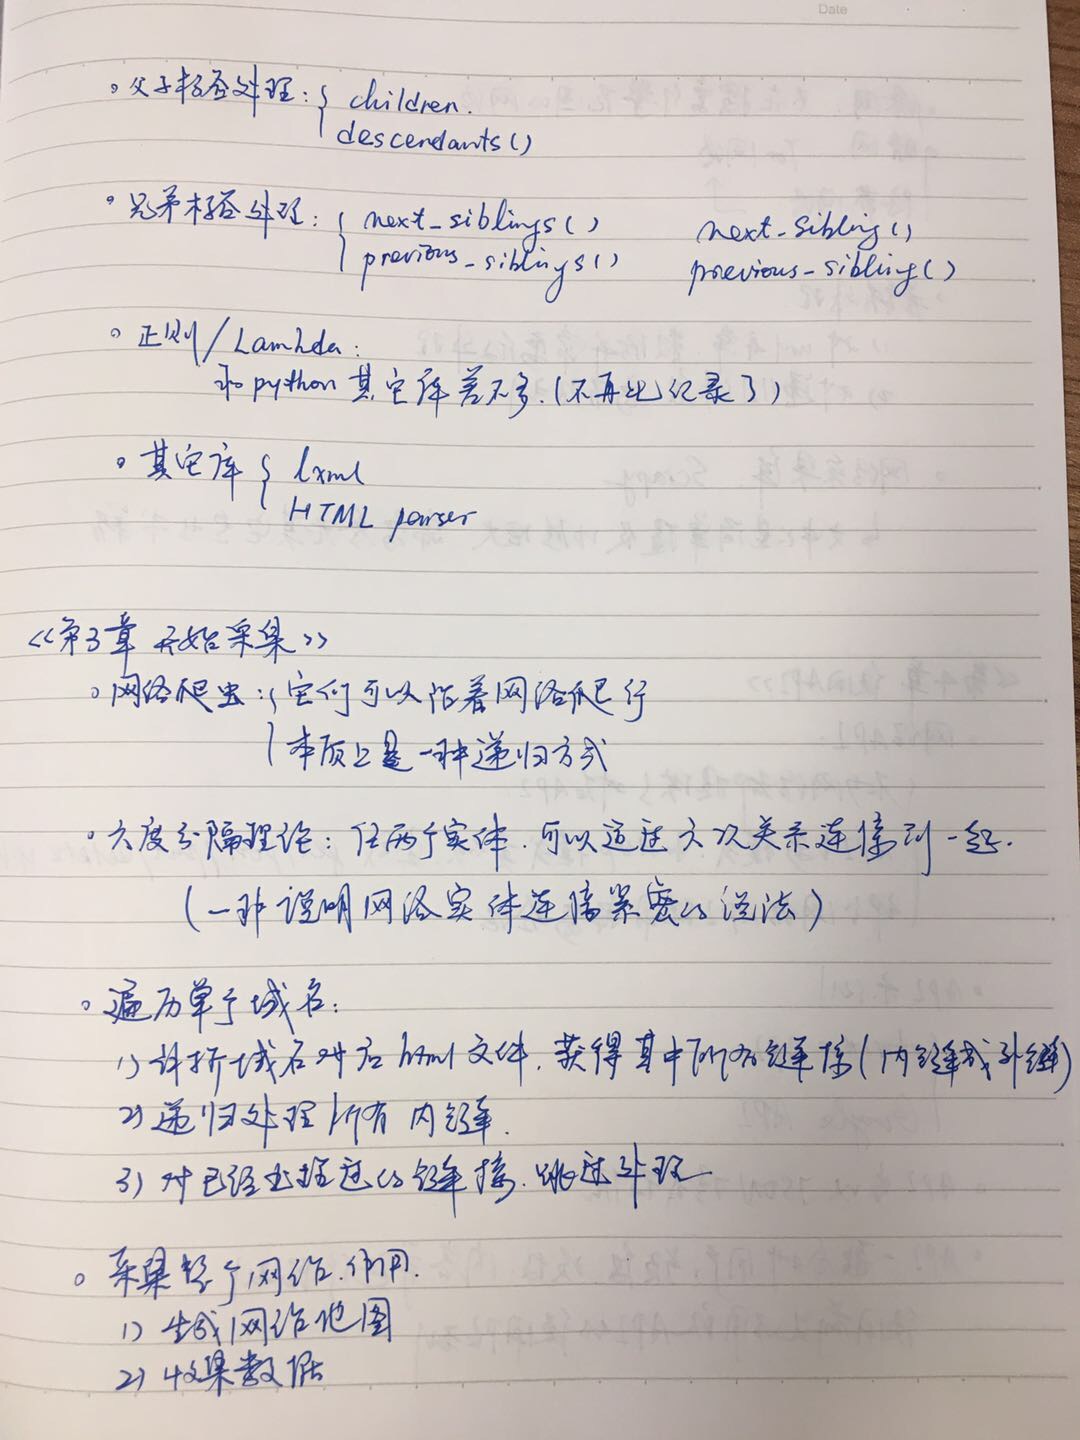 Date
。父子标签处理：{ children.
descendants()
。兄弟标签处理：{ next_siblings() next_sibling()
previous_siblings() previous_sibling()
。正则/Lambda：
和python其它库差不多.(不再此记录了)
。其它库 { lxml
HTML parser
<<第3章 开始采集>>
。网络爬虫：{ 它们可以沿着网络爬行
本质上是一种递归方式
。六度分隔理论：任两个实体.可以通过六次关系连接到一起.
(一种说明网络实体连接紧密的说法)
。遍历单个域名：
1) 评析域名对应html文件.获得其中所有链接(内链或外链)
2) 递归处理所有内链.
3) 对已经处理过的链接.跳过处理
。采集整个网络.作用.
1) 生成网络地图
2) 收集数据